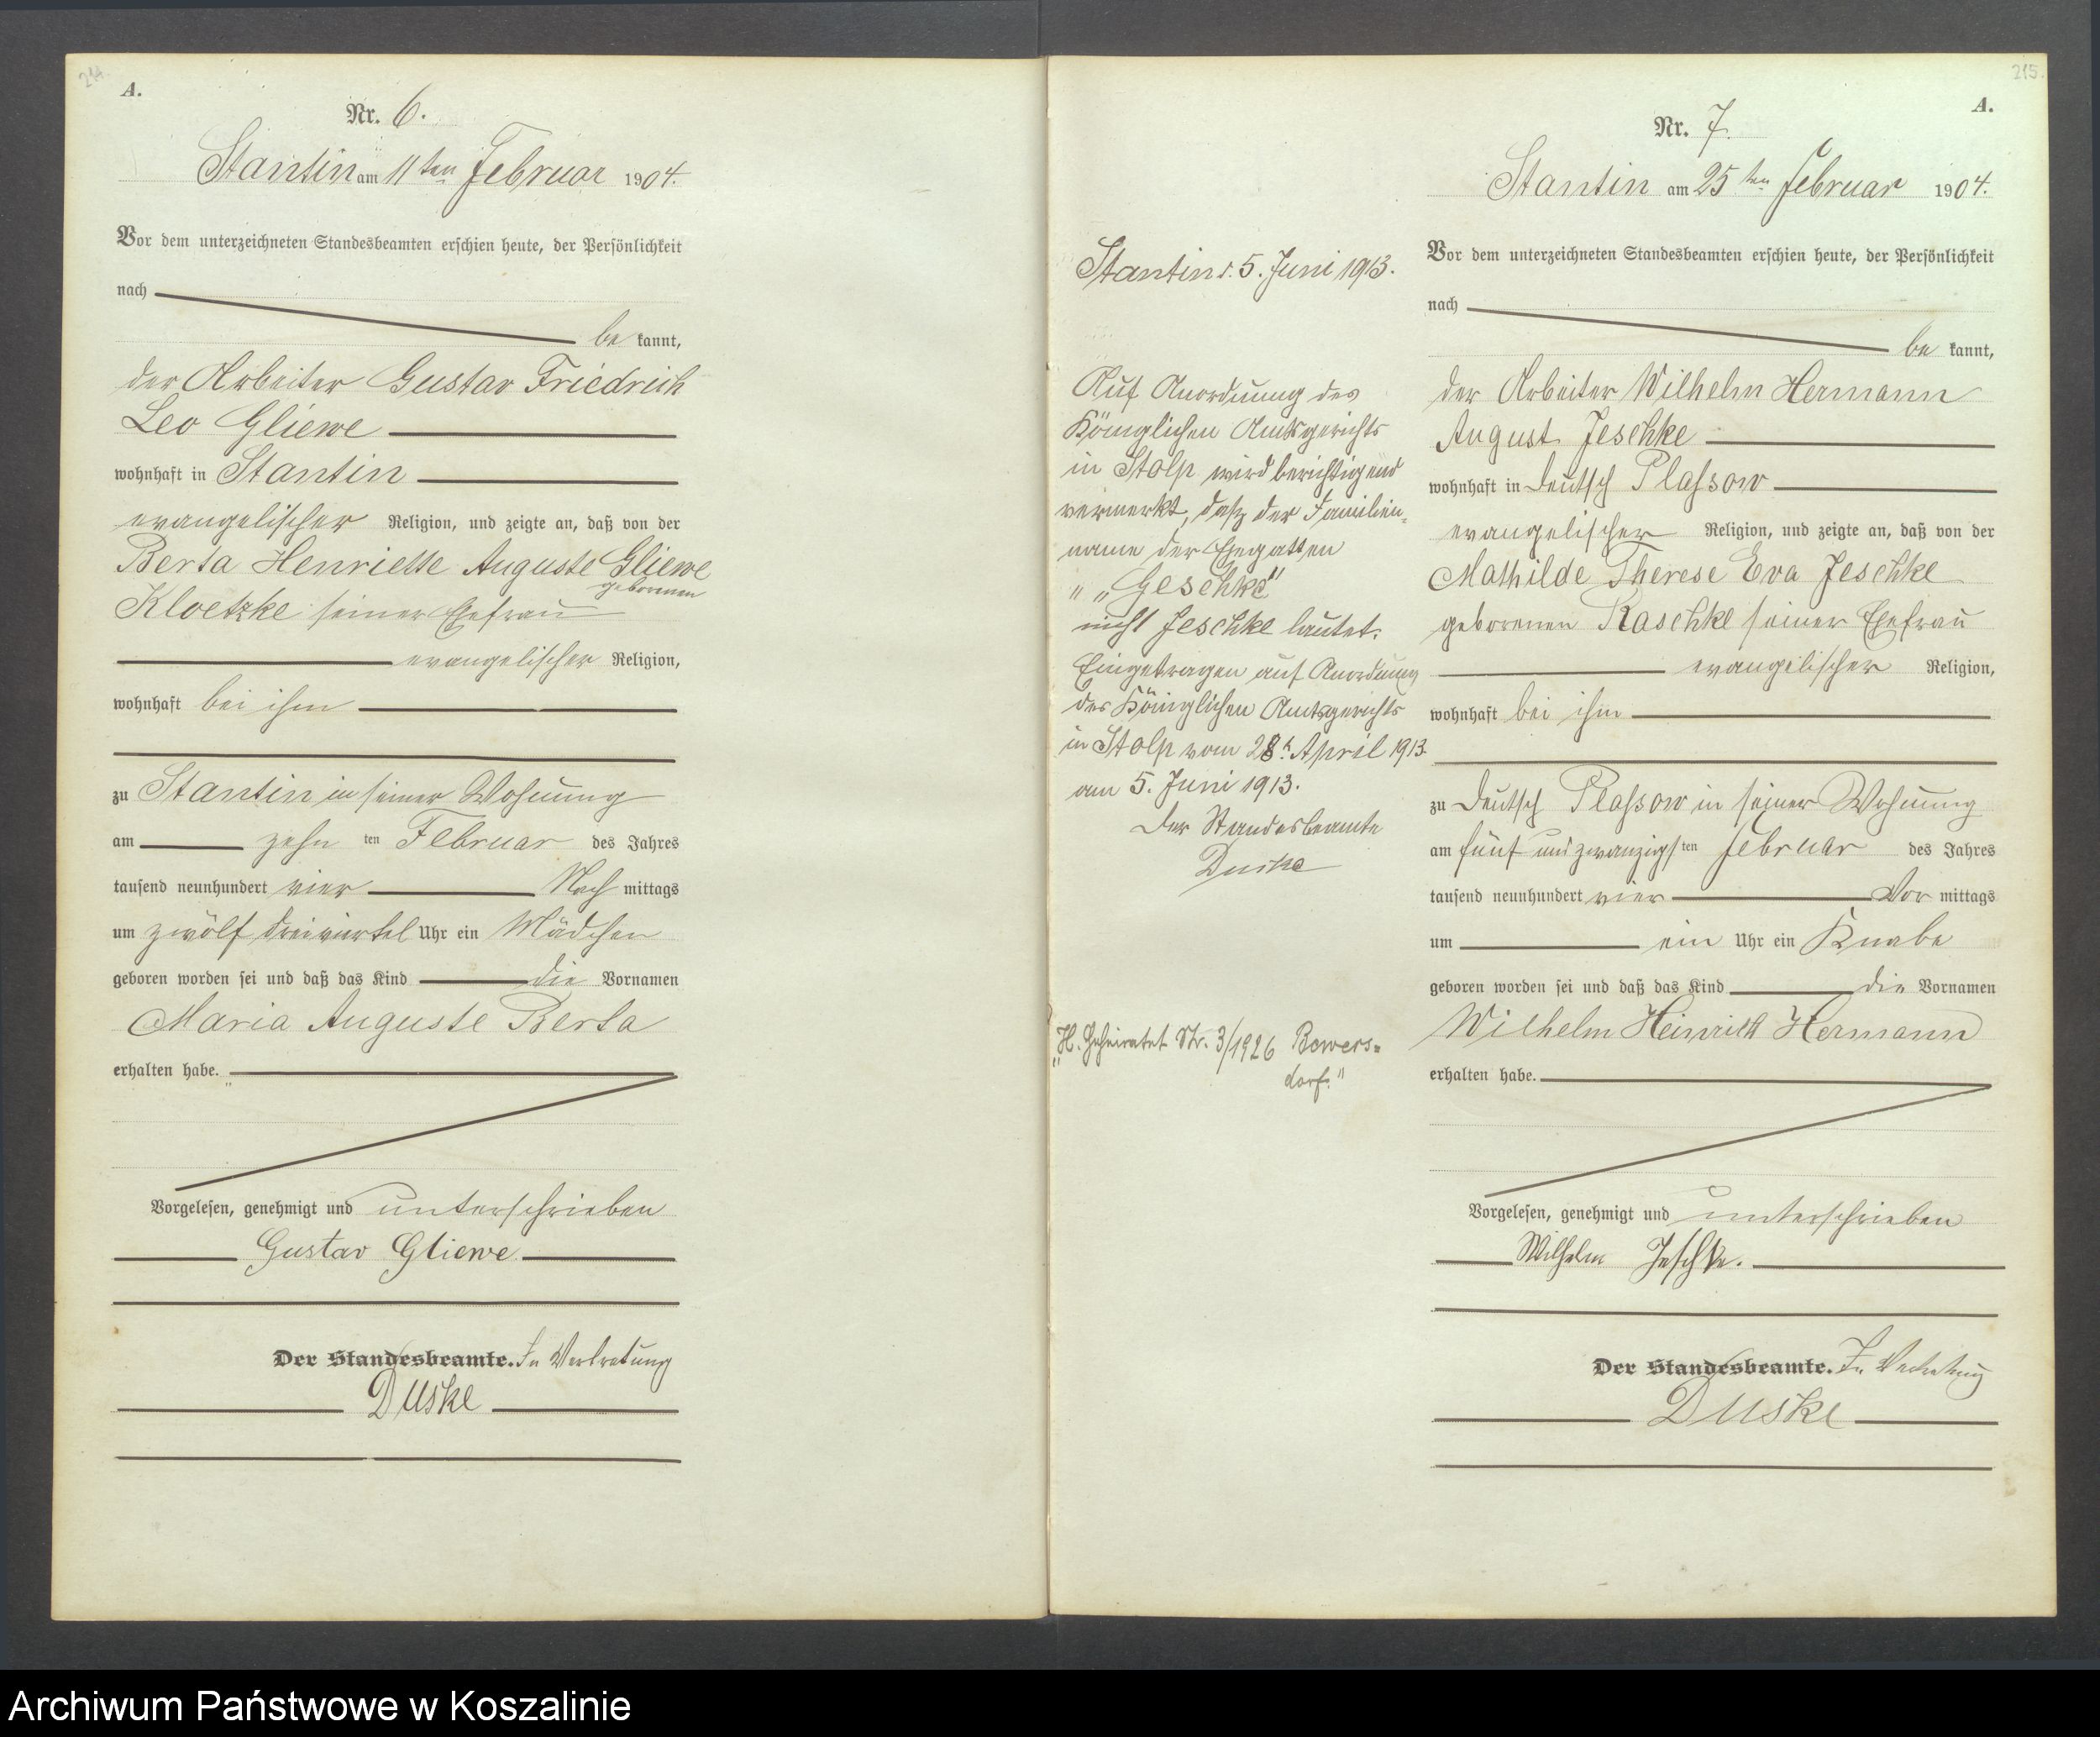 214.
A.
Nr. 6.
Stantin am 11ten Februar 1904.
Vor dem unterzeichneten Standesbeamten erschien heute, der Persönlichkeit
nach
be kannt,
der Arbeiter Gustav Friedrich
Leo Gliewe
wohnhaft in Stantin
evangelischer Religion, und zeigte an, daß von der
Berta Henriette Auguste Gliewe
geborenen
Kloetzke seiner Ehefrau
evangelischer Religion,
wohnhaft bei ihm
zu Stantin in seiner Wohnung
am zehn ten Februar des Jahres
tausend neunhundert vier Nach mittags
um zwölf dreiviertel Uhr ein Mädchen
geboren worden sei und daß das Kind die Vornamen
Maria Auguste Berta
erhalten habe.
Vorgelesen, genehmigt und unterschrieben
Gustav Gliewe.
Der Standesbeamte. In Vertretung
Duske
215.
A.
Nr. 7.
Stantin am 25ten Februar 1904.
Vor dem unterzeichneten Standesbeamten erschien heute, der Persönlichkeit
nach
be kannt,
der Arbeiter Wilhelm Hermann
August Jeschke
wohnhaft in Deutsch Plassow
evangelischer Religion, und zeigte an, daß von der
Mathilde Therese Eva Jeschke
geborenen Raschke seiner Ehefrau
evangelischer Religion,
wohnhaft bei ihm
zu Deutsch Plassow in seiner Wohnung
am fünf und zwanzigsten Februar des Jahres
tausend neunhundert vier Vor mittags
um ein Uhr ein Knabe
geboren worden sei und daß das Kind die Vornamen
Wilhelm Heinrich Hermann
erhalten habe.
Vorgelesen, genehmigt und unterschrieben
Wilhelm Jeschke.
Der Standesbeamte. In Vertretung
Duske
Stantin 5. Juni 1913.
Auf Anordnung des
Königlichen Amtsgerichts
in Stolp wird berichtigend
vermerkt, daß der Familien-
name der Ehegatten
" „Geschke"
nicht Jeschke lautet.
Eingetragen auf Anordnung
des Königlichen Amtsgerichts
in Stolp vom 28t. April 1913
am 5. Juni 1913.
Der Standesbeamte
Duske
„H. Geheiratet Nr. 3/1926 Bewers-
dorf."
Archiwum Państwowe w Koszalinie